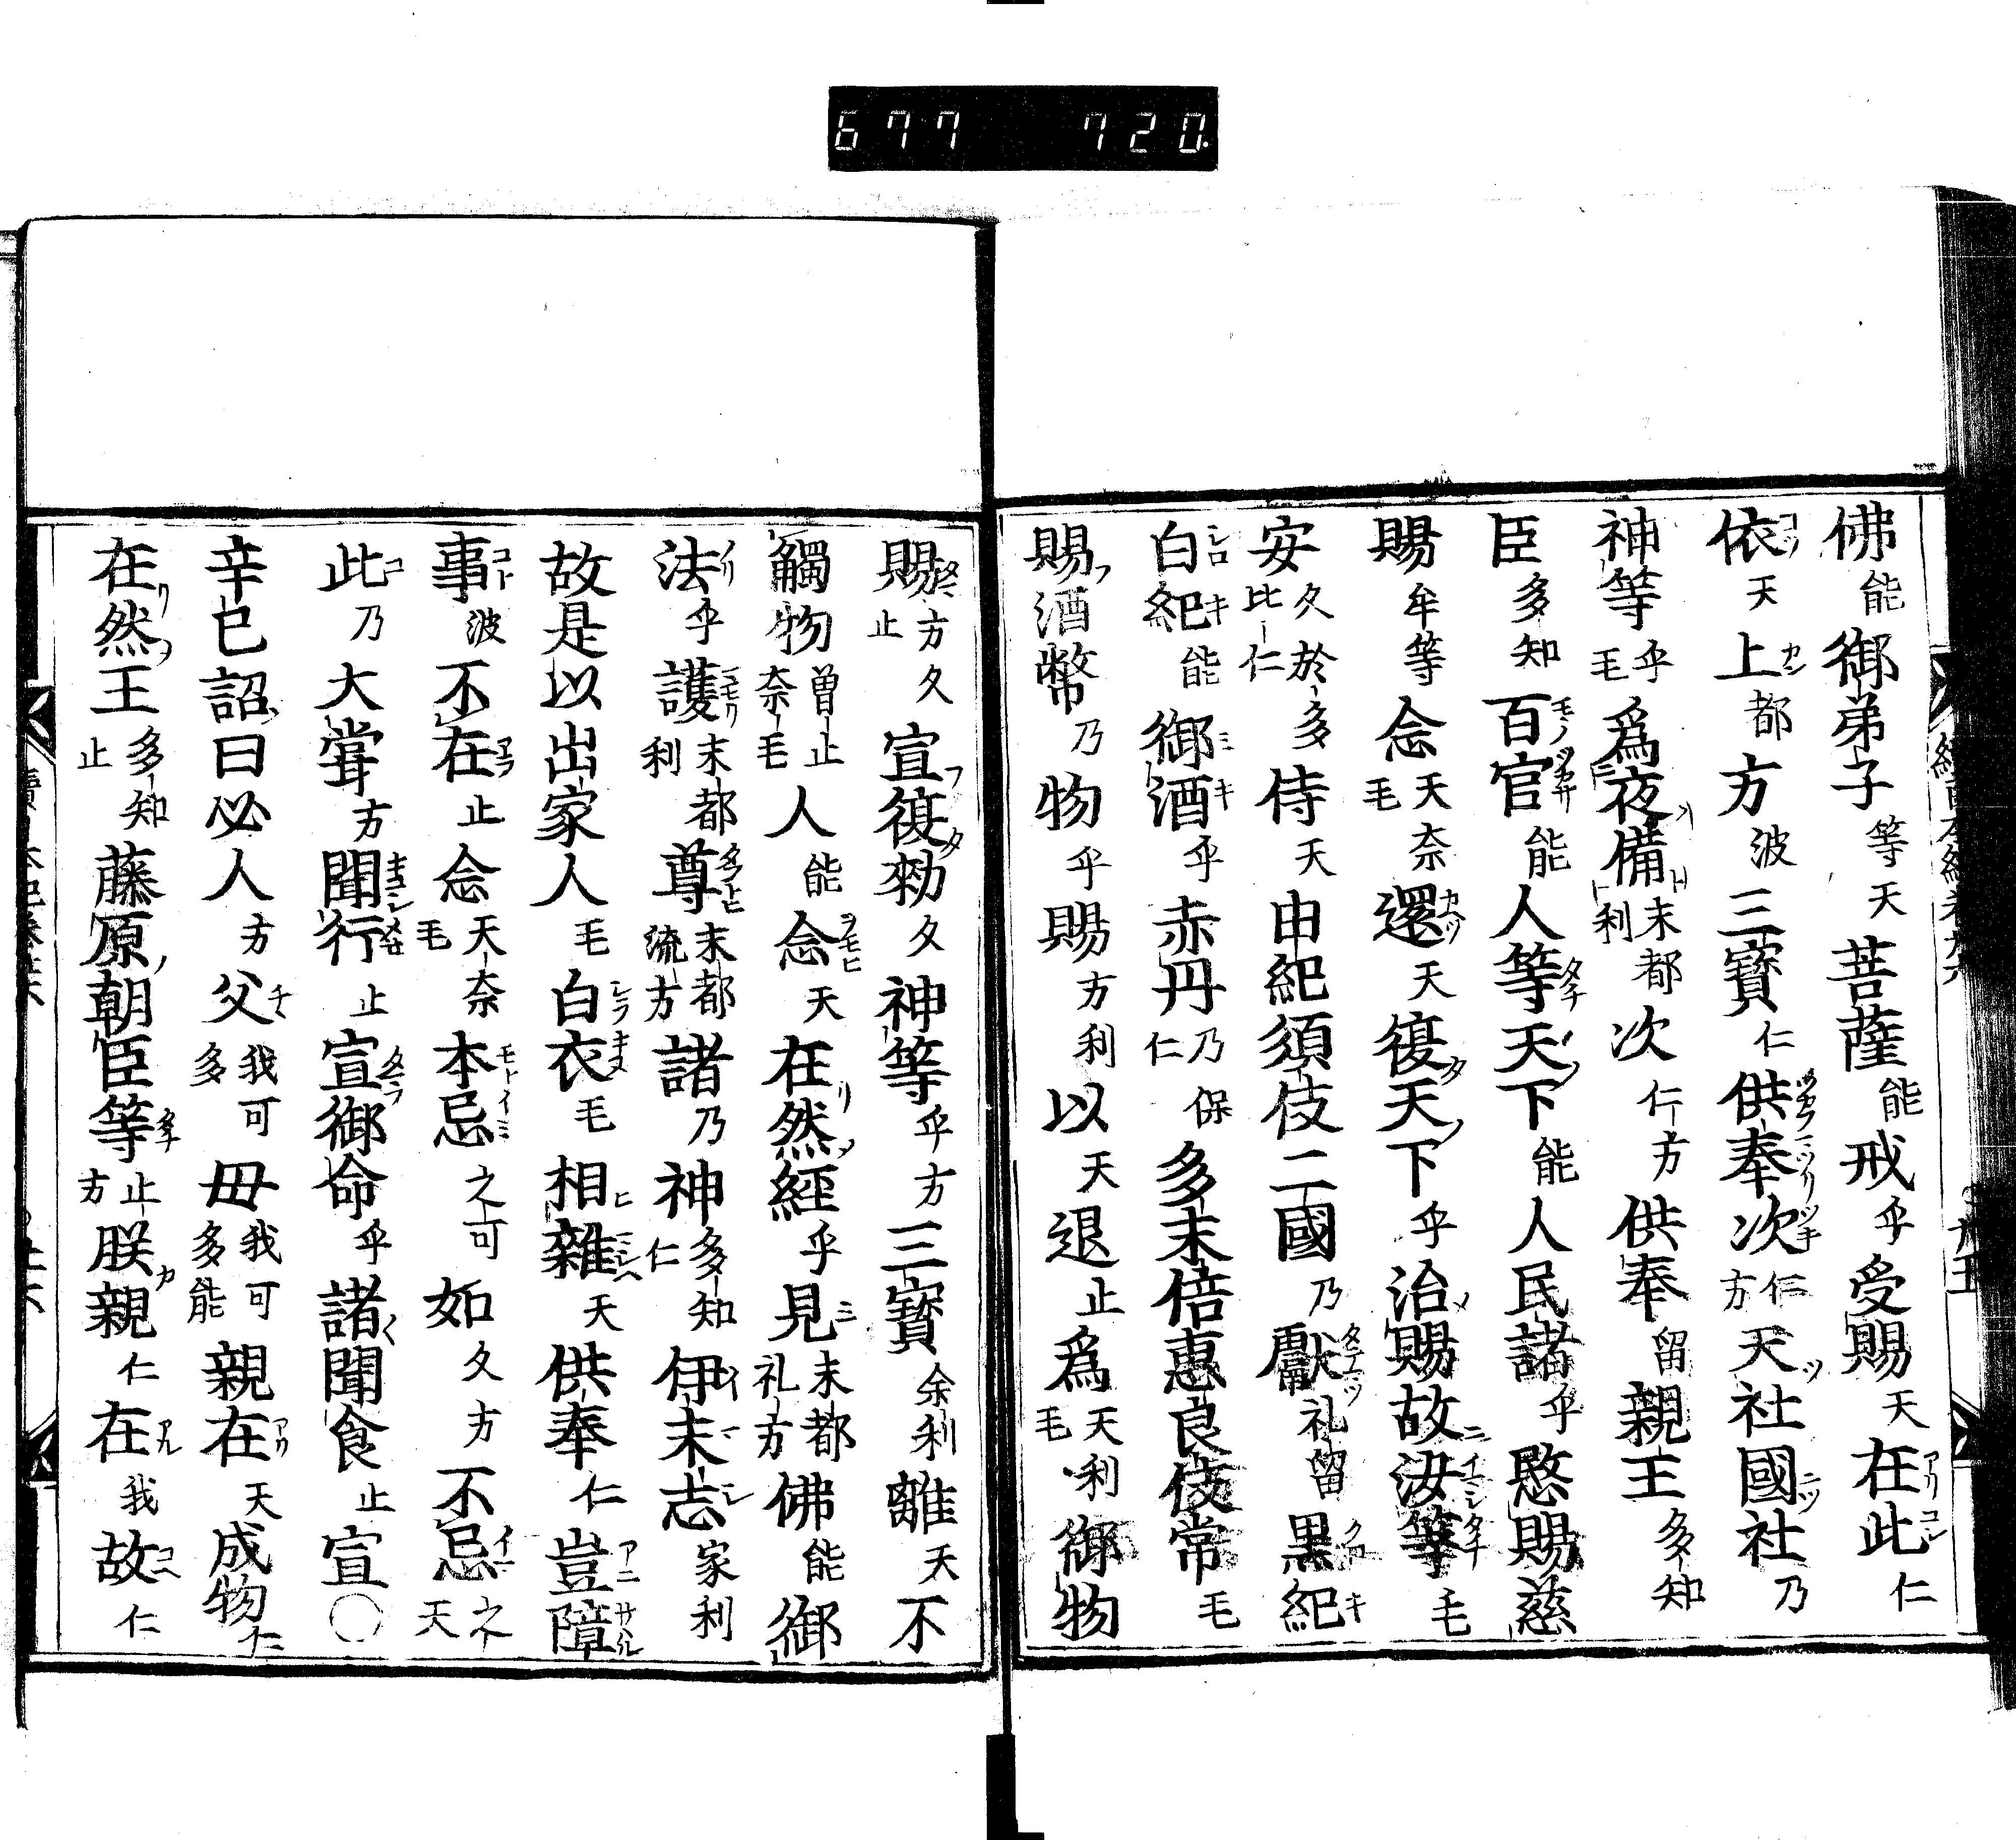 677 720
佛能御弟子等天菩薩能戒乎受賜天在此仁
依天上都方波三寶仁供奉次仁方天社國社乃
神等乎毛爲夜備末利都次仁方供奉留親王多知
臣多知百官能人等天下能人民諸乎愍賜慈
賜牟等念天毛奈還天復天下乎治賜故汝等毛
安久比於仁多侍天由紀須伎二國乃獻礼留黒紀
白紀能御酒乎赤丹乃仁保多末倍惠良伎常毛
賜酒幣乃物乎賜方利以天退止爲天毛利御物
賜方止久宣復勑久神等乎方三寶余利離天不
觸物曽止奈毛人能念天在然經乎見末都礼方佛能御
法乎護末利都尊末都流方諸乃神多知仁伊末志家利
故是以出家人毛白衣毛相雜天供奉仁豈障
事波不在止念天毛奈本忌之可如久方不忌之天
此乃大甞方聞行止宣御命乎諸聞食止宣〇
辛巳詔曰必人方父我可多母我可多能親在天成物仁
在然王多知止藤原朝臣等止方朕親仁在我故仁